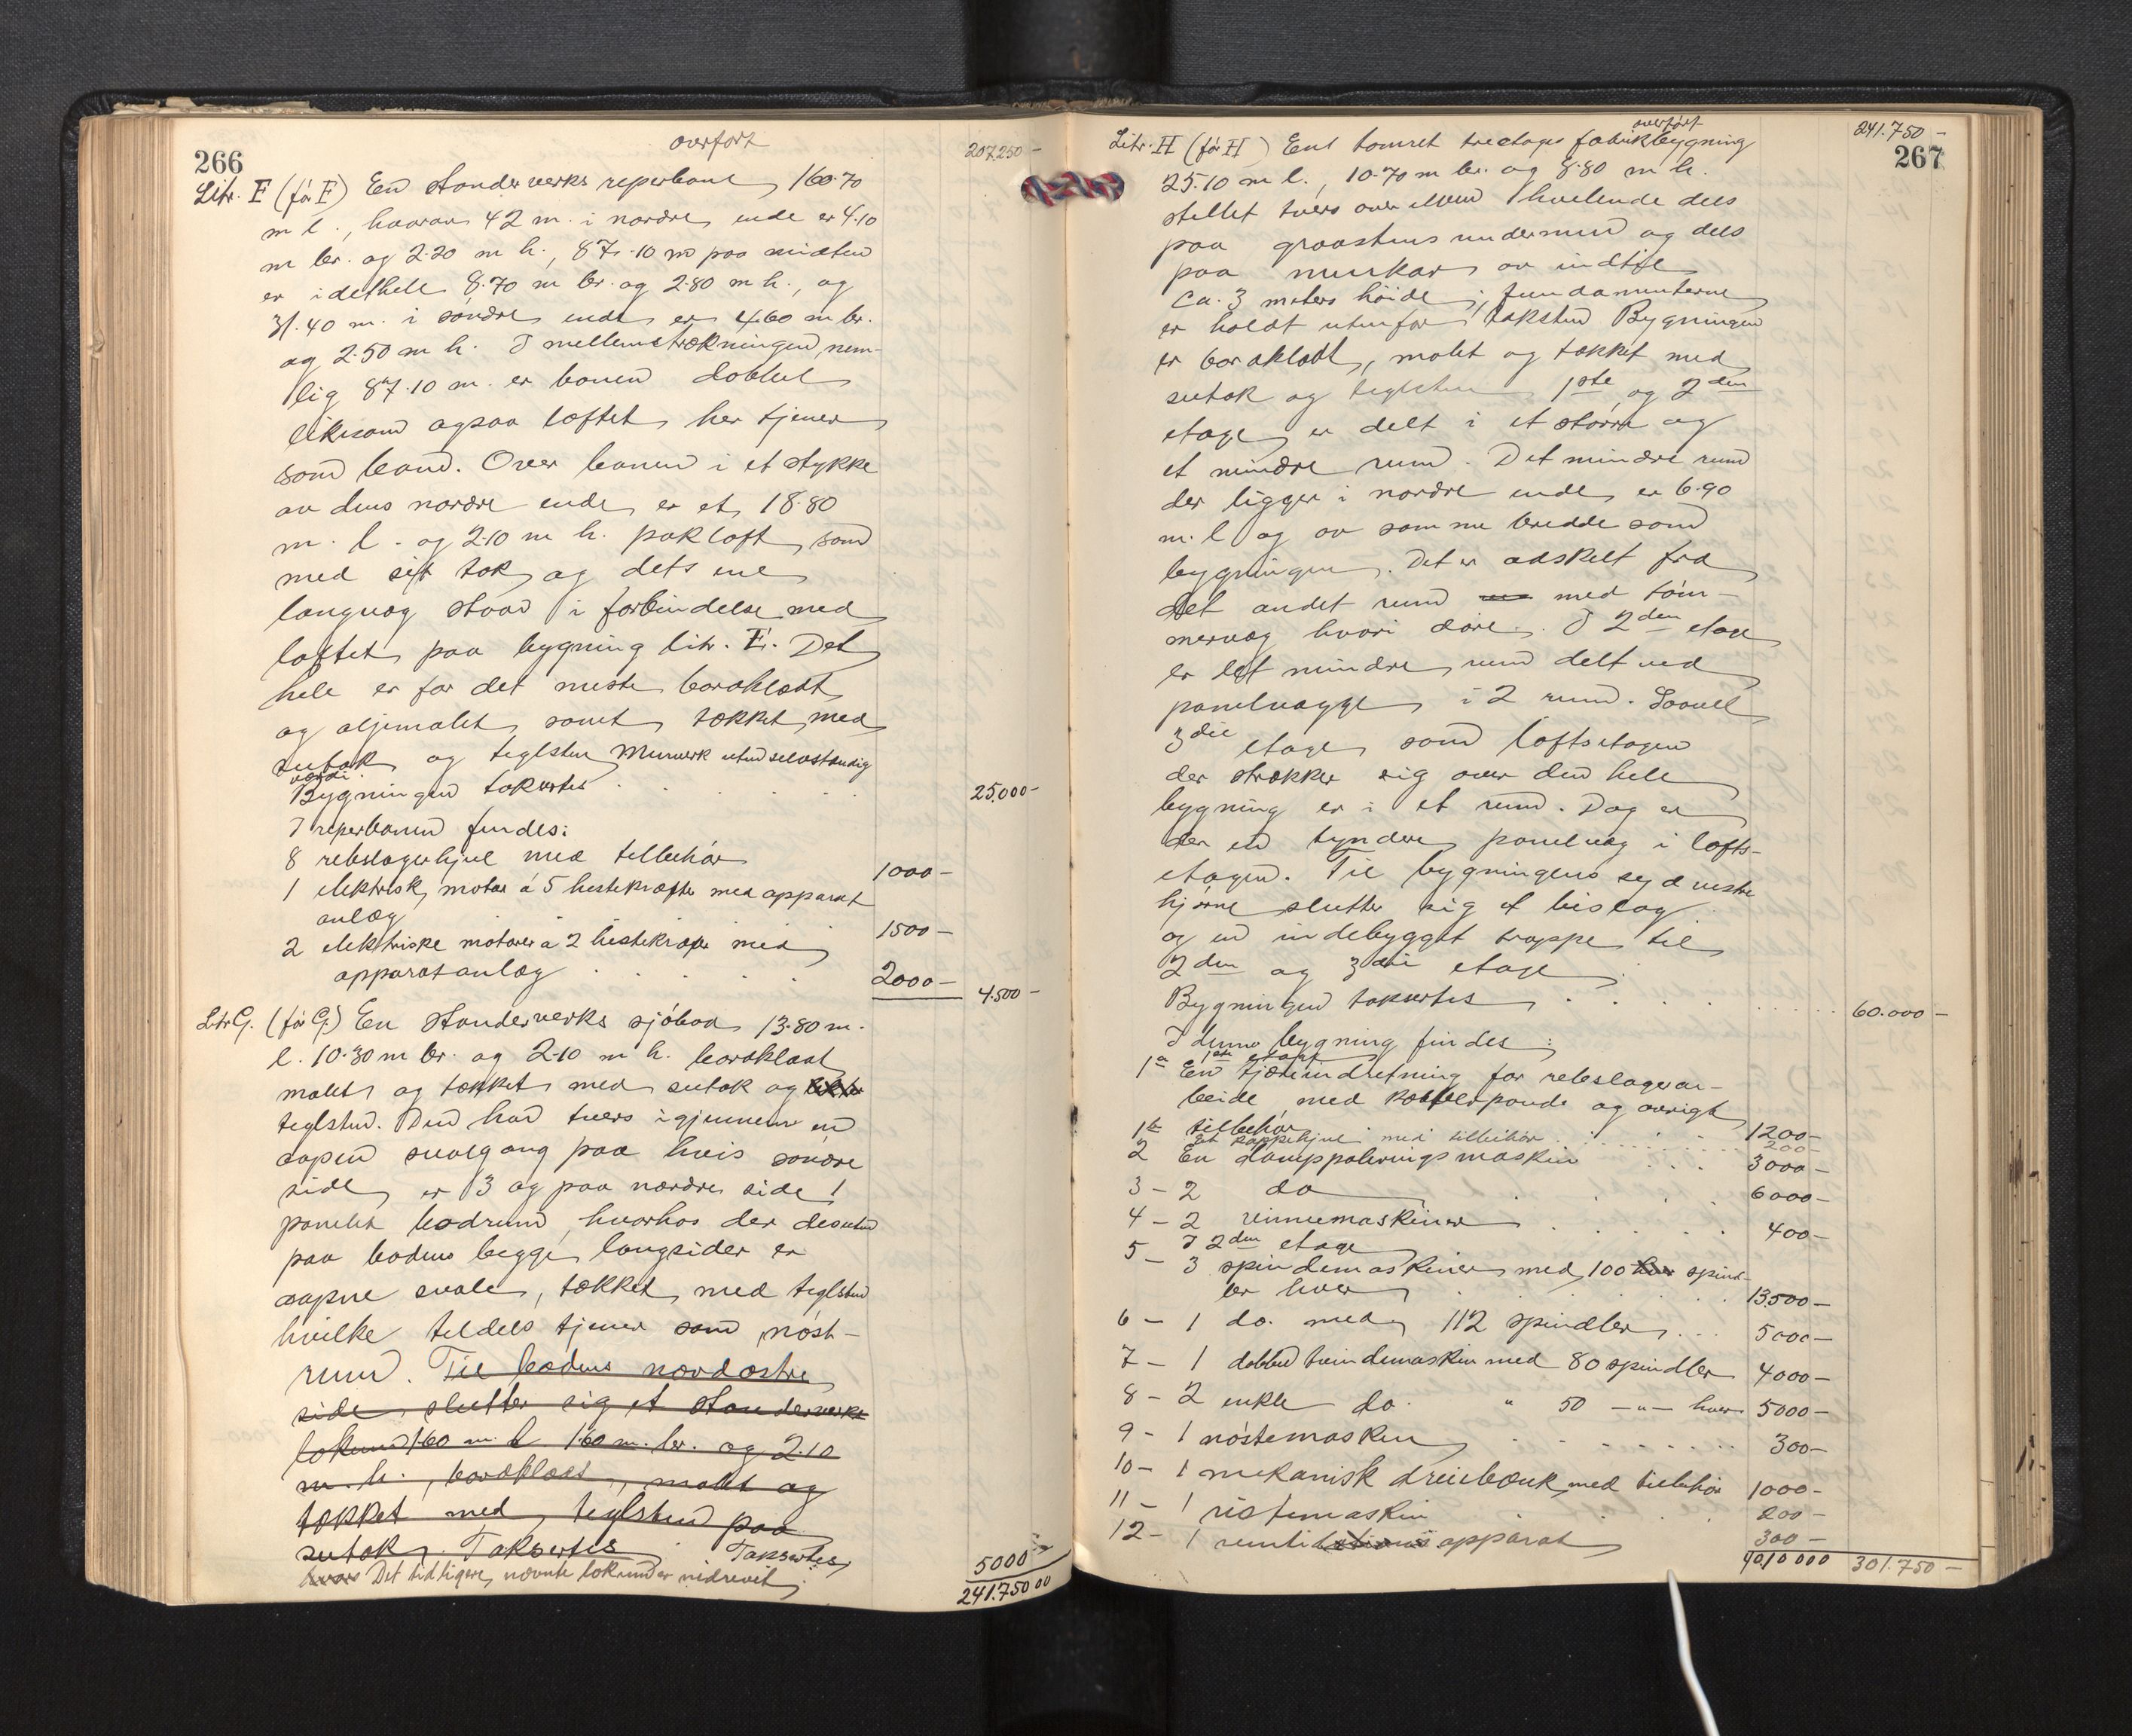 266
overført 207250 -
Litr. F (før F) En stenderverks reperbane, 160.70
m l., hvorav 42 m. i nordre ende er 4.10
m br. og 2.20 m h., 87.10 m paa midten
er i dethele 8.70 m br. og 2.80 m h., og
31.40 m. i søndre ende er 4.60 m br.
og 2.50 m h. I mellemstrækningen, nem-
lig 87.10 m. er banen dobbel
likesom ogsaa loftet her tjener
som bane. Over banen i et stykke
av dens nordre ende er et 18.80
m. l. og 2.10 m h. pakloft, som
med sit tak og dets ene
langvæg staar i forbindelse med
loftet paa bygning litr. E. Det
hele er for det meste bordklædt
og oljemalet samt tækket med
sutak og teglsten Murverk uten selvstændig
værdi.
Bygningen taksertes . . . . 25.000 -
I reperbanen findes:
8 rebslagerhjul med tilbehør 1000 -
1 elektrisk motor á 5 hestekræfter med apparat
anlæg 1500 -
2 elektriske motorer á 2 hestekræfter med
apparatanlæg . . . . 2000 - 4.500 -
Litr G. (før G.) En stenderverks sjøbod 13.80 m.
l. 10.30 m br. og 2.10 m h. bordklædt
malet og tækket med sutak og
teglsten. Den har tvers igjennem en
aapen svalgang paa hvis søndre
side er 3 og paa nordre side 1
panelet bodrum, hvorhos der desuten
paa bodens begge langsider er
aapne svaler, tækket med teglsten
hvilke tildels tjener som nøst-
rum. Til bodens nordøstre
side slutter sig et stenderverks
lokum 1.60 m. l. 1.60 m. br. og 2.10
m. h., bordklædt, malt og
tækket med teglsten paa
sutak. Taksertes Taksertes
Det tidligere nævnte lokum er nedrevet 5000 -
241.750 00
267
overført 241.750 -
Litr. H (før H) Ent tømret treetages fabrikbygning
25.10 m l., 10.70 m br. og 8.80 m h.
stillet tvers over elven hvilende dels
paa graastens undermur og dels
paa murkar av indtil
ca. 3 meters høide; fundamenterne
er holdt utenfor taksten Bygningen
er bordklædt, malet og tækket med
sutak og teglsten 1ste og 2den
etage er delt i et større og
et mindre rum. Det mindre rum
der ligger i nordre ende er 6.90
m. l og av samme bredde som
bygningen. Det er adskilt fra
det andet rum med tøm-
mervæg hvori døre. I 2den etage
er det mindre rum delt ved
panelvægge i 2 rum. Saavel
3die etage som loftsetagen
der strækker sig over den hele
bygning er i et rum. Dog er
der en tyndere panelvæg i lofts-
etagen. Til bygningens sydvestre
hjørne slutter sig et bislag
og en indebygget trappe til
2den og 3die etage.
Bygningen taksertes . . . . 60.000 -
I denne bygning findes:
1ste etage
1a En tjæreindretning for rebslagerar-
beide med kobberpande og øvrigt
tilbehør 1200 -
1b Et kappehjul med tilbehør . . . . 200 -
2 En damppoleringsmaskin . . . 3000 -
3 - 2 do . . . 6000 -
4 - 2 rennemaskiner . . . . 400 -
I 2den etage
5 - 3 spindemaskiner med 100 spind-
ler hver . . . . 13500 -
6 - 1 do. med 112 spindler . . . 5000 -
7 - 1 dobbel tvindemaskin med 80 spindler 4000 -
8 - 2 enkle do. " 50 -"- hver 5000 -
9 - 1 nøstemaskin . . . . 300 -
10 - 1 mekanisk dreiebænk med tilbehør 1000 -
11 - 1 ristemaskin . . 200 -
12 - 1 ventilationsapparat 300 -
301.750 -